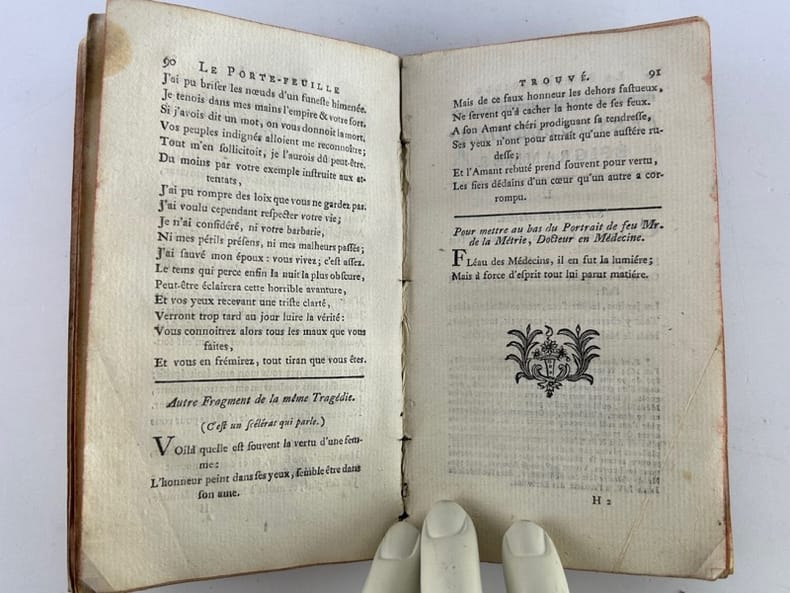 90 LE PORTE-FEUILLE
J'ai pu briser les nœuds d'un funeste himenée.
Je tenois dans mes mains l'empire & votre sort.
Si j'avois dit un mot, on vous donnoit la mort.
Vos peuples indignés alloient me reconnoître;
Tout m'en sollicitoit, je l'aurois dû peut-être.
Du moins par votre exemple instruite aux at-
tentats,
J'ai pu rompre des loix que vous ne gardez pas.
J'ai voulu cependant respecter votre vie;
Je n'ai considéré, ni votre barbarie,
Ni mes périls présens, ni mes malheurs passés;
J'ai sauvé mon époux: vous vivez; c'est assez.
Le tems qui perce enfin la nuit la plus obscure,
Peut-être éclairera cette horrible avanture,
Et vos yeux recevant une triste clarté,
Verront trop tard au jour luire la vérité:
Vous connoitrez alors tous les maux que vous
faites,
Et vous en frémirez, tout tiran que vous êtes.
Autre Fragment de la même Tragédie.
(C'est un scélérat qui parle.)
Voilà quelle est souvent la vertu d'une fem-
me:
L'honneur peint dans ses yeux, semble être dans
son ame.
TROUVÉ. 91
Mais de ce faux honneur les dehors fastueux,
Ne servent qu'à cacher la honte de ses feux.
A son Amant chéri prodiguant sa tendresse,
Ses yeux n'ont pour attrait qu'une austére ru-
desse;
Et l'Amant rebuté prend souvent pour vertu,
Les fiers dédains d'un cœur qu'un autre a cor-
rompu.
Pour mettre au bas du Portrait de feu Mr.
de la Métrie, Docteur en Médecine.
Fléau des Médecins, il en fut la lumiére;
Mais à force d'esprit tout lui parut matiére.
H 2